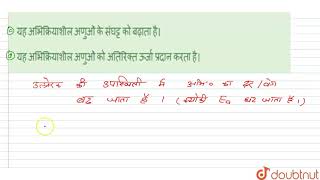 c यह अभिक्रियाशील अणुओं के संघट्ट को बढ़ाता है।
d यह अभिक्रियाशील अणुओं को अतिरिक्त ऊर्जा प्रदान करता है।
उत्प्रेरक की उपस्थिति में अभि० का दर / वेग
बढ़ जाता है । ( क्योंकि Ea घट जाता है । )
doubtnut